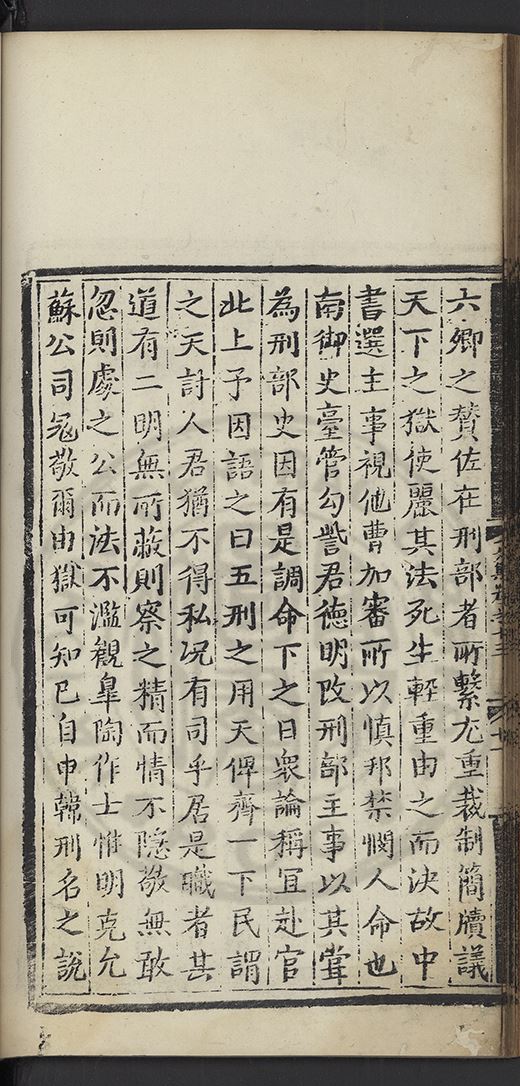 六卿之贊佐在刑部者所繫尤重裁制簡牘議
天下之獄使麗其法死生輕重由之而決故中
書選主事視他曹加審所以慎邦禁憫人命也
南御史臺管勾訾君徳明改刑部主事以其甞
為刑部史因有是調命下之日衆論稱宜赴官
此上予因語之曰五刑之用天俾齊一下民謂
之天討人君猶不得私况有司乎居是職者其
道有二明無所蔽則察之精而情不隱敬無敢
忽則處之公而法不濫觀臯陶作士惟明克允
蘇公司冦敬爾由獄可知已自申韓刑名之說